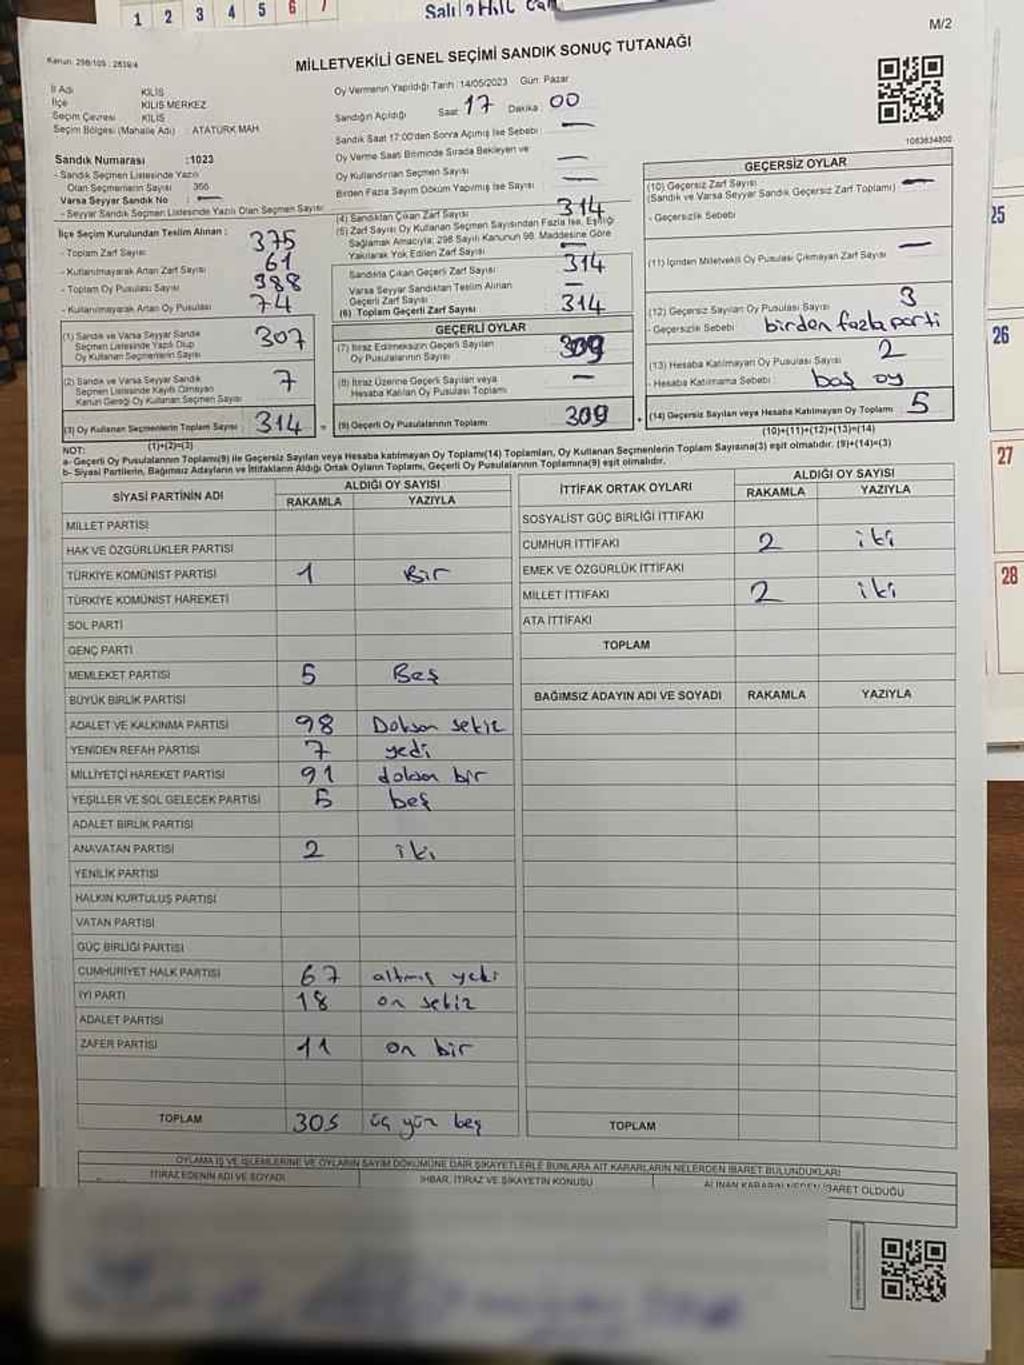 1 2 3 4 5 6 7
M/2
MİLLETVEKİLİ GENEL SEÇİMİ SANDIK SONUÇ TUTANAĞI
İl Adı KİLİS
İlçe KİLİS MERKEZ
Seçim Çevresi KİLİS
Seçim Bölgesi (Mahalle Adı) : ATATÜRK MAH.
Sandık Numarası :1023
- Sandık Seçmen Listesinde Yazılı
Olan Seçmenlerin Sayısı 356
Varsa Seyyar Sandık No : —
- Seyyar Sandık Seçmen Listesinde Yazılı Olan Seçmen Sayısı
Oy Vermenin Yapıldığı Tarih : 14/05/2023 Gün: Pazar
Sandığın Açıldığı Saat 17 Dakika : 00
Sandık Saat 17:00'den Sonra Açılmış İse Sebebi : —
Oy Verme Saati Bitiminde Sırada Bekleyen ve
Oy Kullandırılan Seçmen Sayısı —
Birden Fazla Sayım Döküm Yapılmış İse Sayısı —
İlçe Seçim Kurulundan Teslim Alınan :
- Toplam Zarf Sayısı 375
- Kullanılmayarak Artan Zarf Sayısı 61
- Toplam Oy Pusulası Sayısı 388
- Kullanılmayarak Artan Oy Pusulası 74
(1) Sandık ve Varsa Seyyar Sandık
Seçmen Listesinde Yazılı Olup
Oy Kullanan Seçmenlerin Sayısı 307
(2) Sandık ve Varsa Seyyar Sandık
Seçmen Listesinde Kayıtlı Olmayan
Kanun Gereği Oy Kullanan Seçmen Sayısı 7
(3) Oy Kullanan Seçmenlerin Toplam Sayısı 314
(1)+(2)=(3)
(4) Sandıktan Çıkan Zarf Sayısı 314
(5) Zarf Sayısı Oy Kullanan Seçmen Sayısından Fazla İse, Eşitliği
Sağlamak Amacıyla; 298 Sayılı Kanunun 98. Maddesine Göre
Yakılarak Yok Edilen Zarf Sayısı —
Sandıkta Çıkan Geçerli Zarf Sayısı 314
Varsa Seyyar Sandıktan Teslim Alınan
Geçerli Zarf Sayısı —
(6) Toplam Geçerli Zarf Sayısı 314
GEÇERLİ OYLAR
(7) İtiraz Edilmeksizin Geçerli Sayılan
Oy Pusulasının Sayısı 309
(8) İtiraz Üzerine Geçerli Sayılan veya
Hesaba Katılan Oy Pusulası Toplamı —
(9) Geçerli Oy Pusulalarının Toplamı 309
GEÇERSİZ OYLAR
(10) Geçersiz Zarf Sayısı —
(Sandık ve Varsa Seyyar Sandık Geçersiz Zarf Toplamı)
- Geçersizlik Sebebi
(11) İçinden Milletvekili Oy Pusulası Çıkmayan Zarf Sayısı —
(12) Geçersiz Sayılan Oy Pusulası Sayısı 3
- Geçersizlik Sebebi birden fazla parti
(13) Hesaba Katılmayan Oy Pusulası Sayısı 2
- Hesaba Katılmama Sebebi : boş oy
(14) Geçersiz Sayılan veya Hesaba Katılmayan Oy Toplamı 5
(10)+(11)+(12)+(13)=(14)
NOT:
a- Geçerli Oy Pusulalarının Toplamı(9) ile Geçersiz Sayılan veya Hesaba katılmayan Oy Toplamı(14) Toplamları, Oy Kullanan Seçmenlerin Toplam Sayısına(3) eşit olmalıdır. (9)+(14)=(3)
b- Siyasi Partilerin, Bağımsız Adayların ve İttifakların Aldığı Ortak Oyların Toplamı, Geçerli Oy Pusulalarının Toplamına(9) eşit olmalıdır.
SİYASİ PARTİNİN ADI ALDIĞI OY SAYISI
RAKAMLA YAZIYLA
MİLLET PARTİSİ
HAK VE ÖZGÜRLÜKLER PARTİSİ
TÜRKİYE KOMÜNİST PARTİSİ 1 Bir
TÜRKİYE KOMÜNİST HAREKETİ
SOL PARTİ
GENÇ PARTİ
MEMLEKET PARTİSİ 5 Beş
BÜYÜK BİRLİK PARTİSİ
ADALET VE KALKINMA PARTİSİ 98 Doksan sekiz
YENİDEN REFAH PARTİSİ 7 yedi
MİLLİYETÇİ HAREKET PARTİSİ 91 doksan bir
YEŞİLLER VE SOL GELECEK PARTİSİ 5 beş
ADALET BİRLİK PARTİSİ
ANAVATAN PARTİSİ 2 iki
YENİLİK PARTİSİ
HALKIN KURTULUŞ PARTİSİ
VATAN PARTİSİ
GÜÇ BİRLİĞİ PARTİSİ
CUMHURİYET HALK PARTİSİ 67 altmış yedi
İYİ PARTİ 18 on sekiz
ADALET PARTİSİ
ZAFER PARTİSİ 11 on bir
TOPLAM 305 üç yüz beş
İTTİFAK ORTAK OYLARI ALDIĞI OY SAYISI
RAKAMLA YAZIYLA
SOSYALİST GÜÇ BİRLİĞİ İTTİFAKI
CUMHUR İTTİFAKI 2 iki
EMEK VE ÖZGÜRLÜK İTTİFAKI
MİLLET İTTİFAKI 2 iki
ATA İTTİFAKI
TOPLAM
BAĞIMSIZ ADAYIN ADI VE SOYADI RAKAMLA YAZIYLA
TOPLAM
OYLAMA İŞ VE İŞLEMLERİNE VE OYLARIN SAYIM DÖKÜMÜNE DAİR ŞİKAYETLERLE BUNLARA AİT KARARLARIN NELERDEN İBARET BULUNDUKLARI
İTİRAZ EDENİN ADI VE SOYADI İHBAR, İTİRAZ VE ŞİKAYETİN KONUSU ALINAN KARARIN NEDEN İBARET OLDUĞU
25
26
27
28